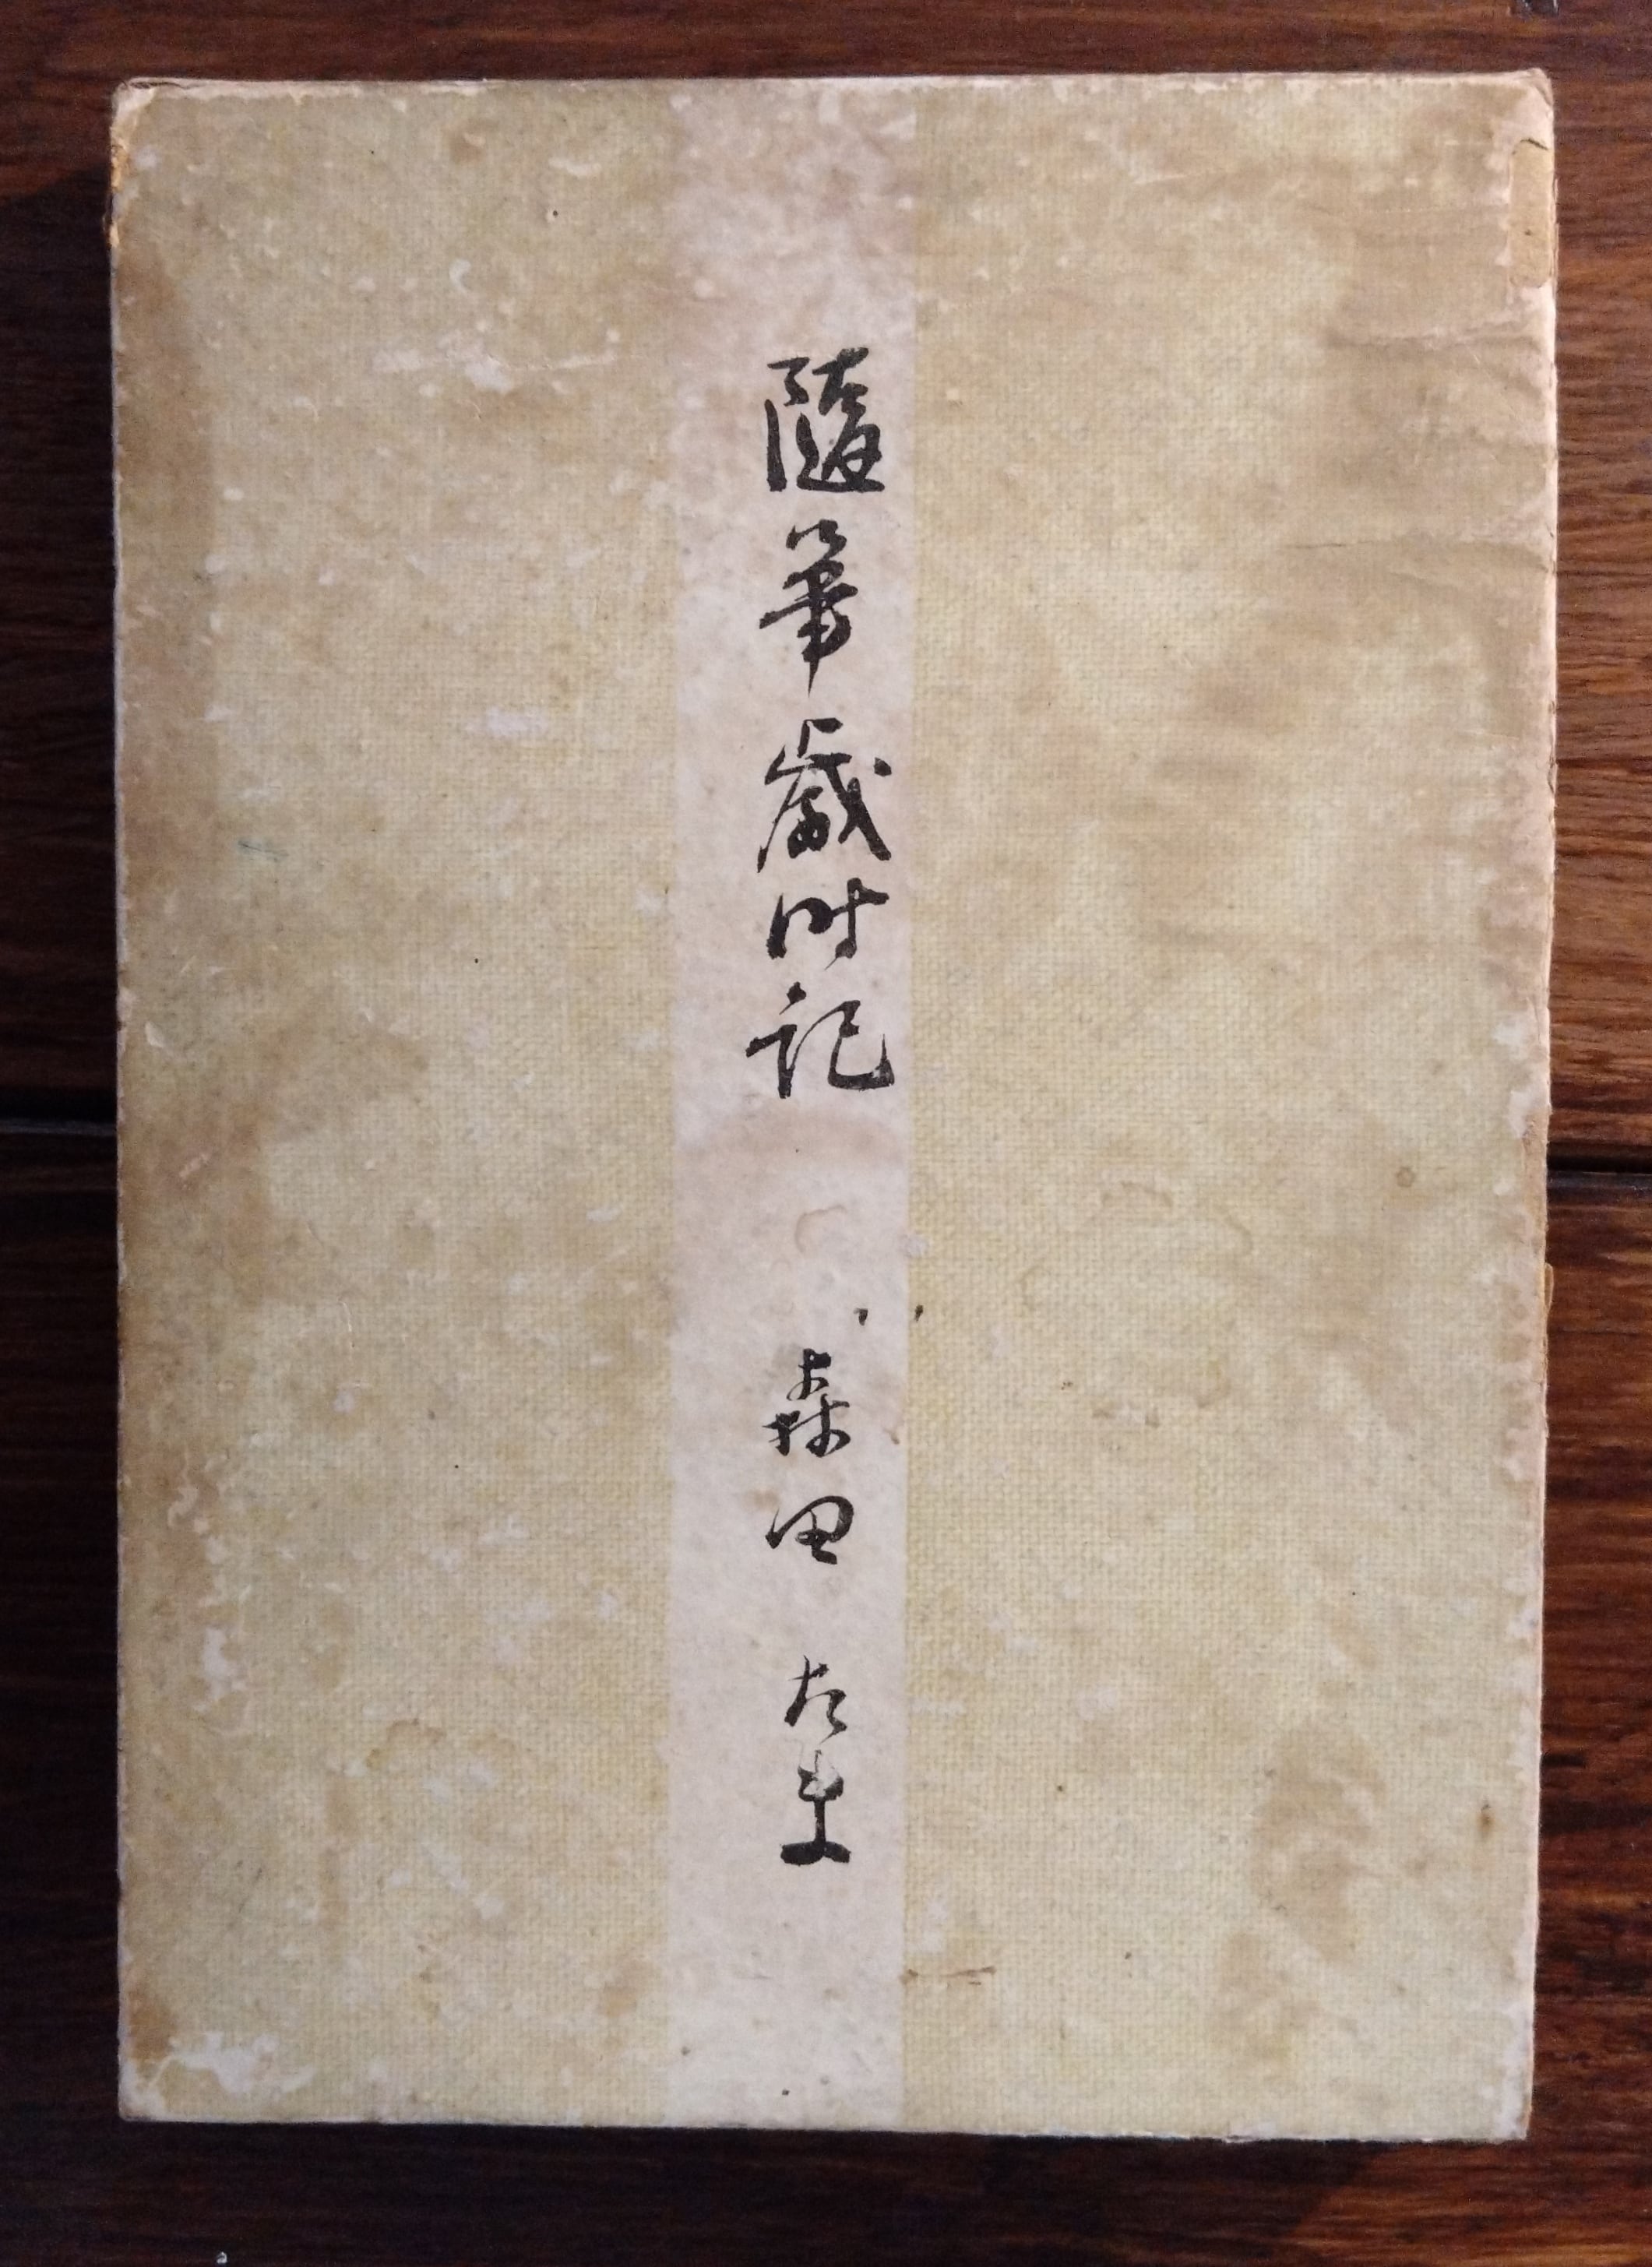 隨筆歳時記 森田たま